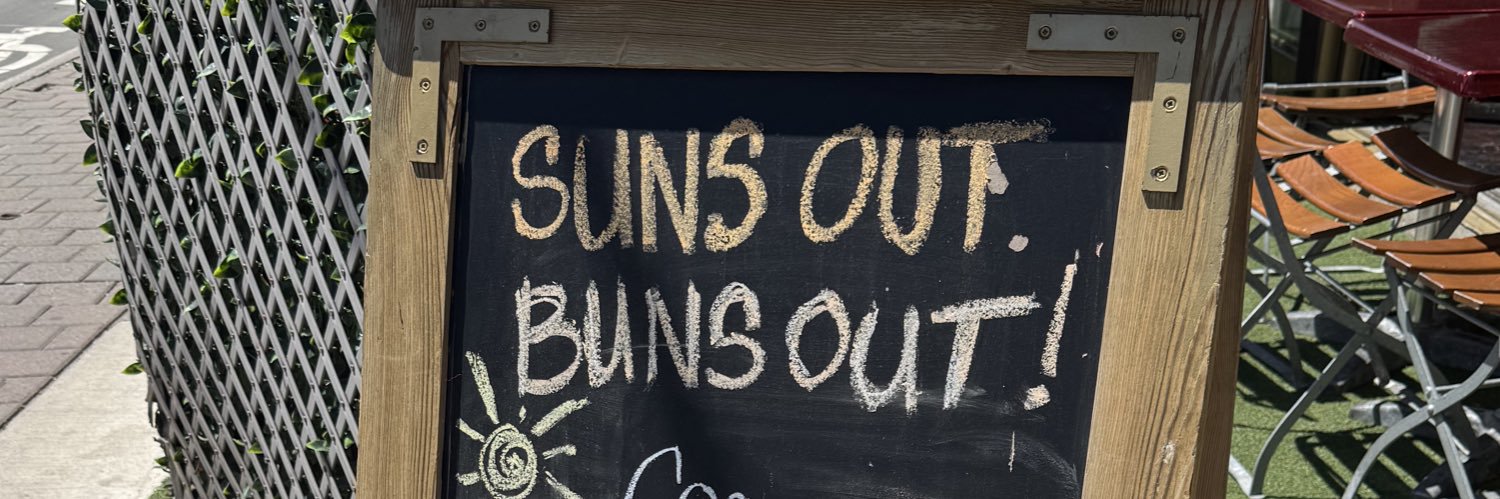 SUNS OUT.
BUNS OUT!